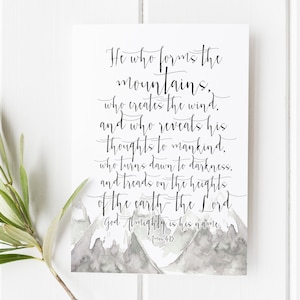 He who forms the
mountains,
who creates the wind,
and who reveals his
thoughts to mankind,
who turns dawn to darkness,
and treads on the heights
of the earth ~ the Lord
God Almighty is his name